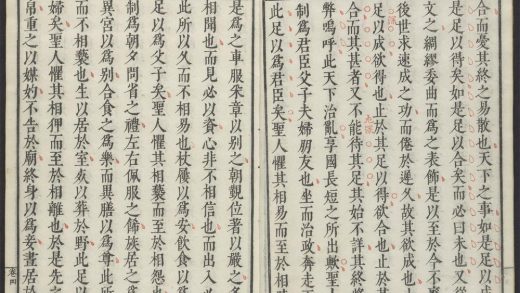 合而憂其終之易散也天下之事如是足以成
是足以得矣如是足以合矣而必曰未也又從
文之綢繆委曲而爲之表飾是以至於今不
後世求速成之功而倦於遲久故其欲成也
足以成欲得也止於其足以得欲合也止於其
合而其甚者又不能待其足其始不詳其終將
弊嗚呼此天下治亂享國長短之所出歟聖
制爲君臣父子夫婦朋友也坐而治政奔走
此足以爲君臣矣聖人懼其相易而至於
是爲之車服采章以別之朝覲位著以嚴之名
相聞也而見必以資心非不相信也而出入必
此所以久而不相易也杖屨以爲安飲食以爲
足以爲父子矣聖人懼其相褻而至於相怨也
制爲朝夕問省之禮左右佩服之飾族居之爲
異宮以爲別合食之爲樂而異膳以爲尊此所
而不相褻也生以居於室死以葬於野此足以
婦矣聖人懼其相狎而至於相離也於是先之
帛重之以媒妁不告於廟終身以爲妾晝居於
卷四